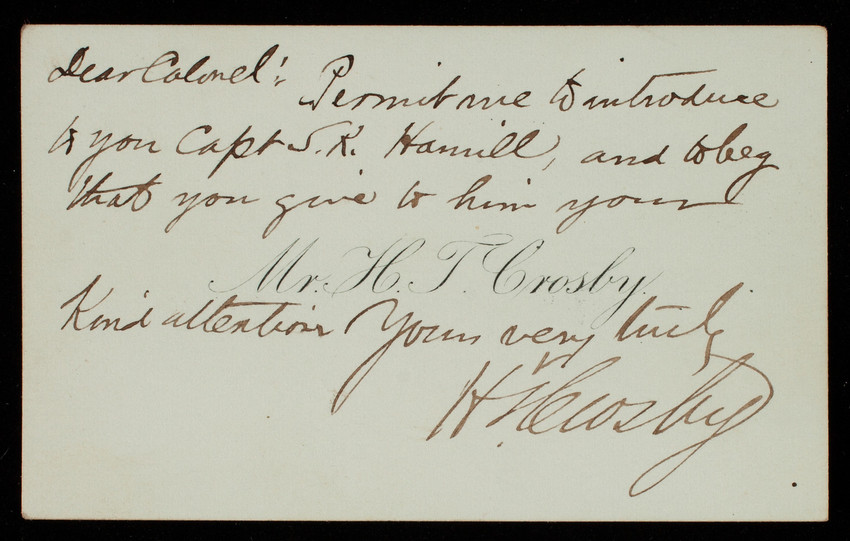 Dear Colonel:
Permit me to introduce
to you Capt S. K. Hamill, and to beg
that you give to him your
Mr. H. T. Crosby.
Kind attention Yours very truly
H T Crosby